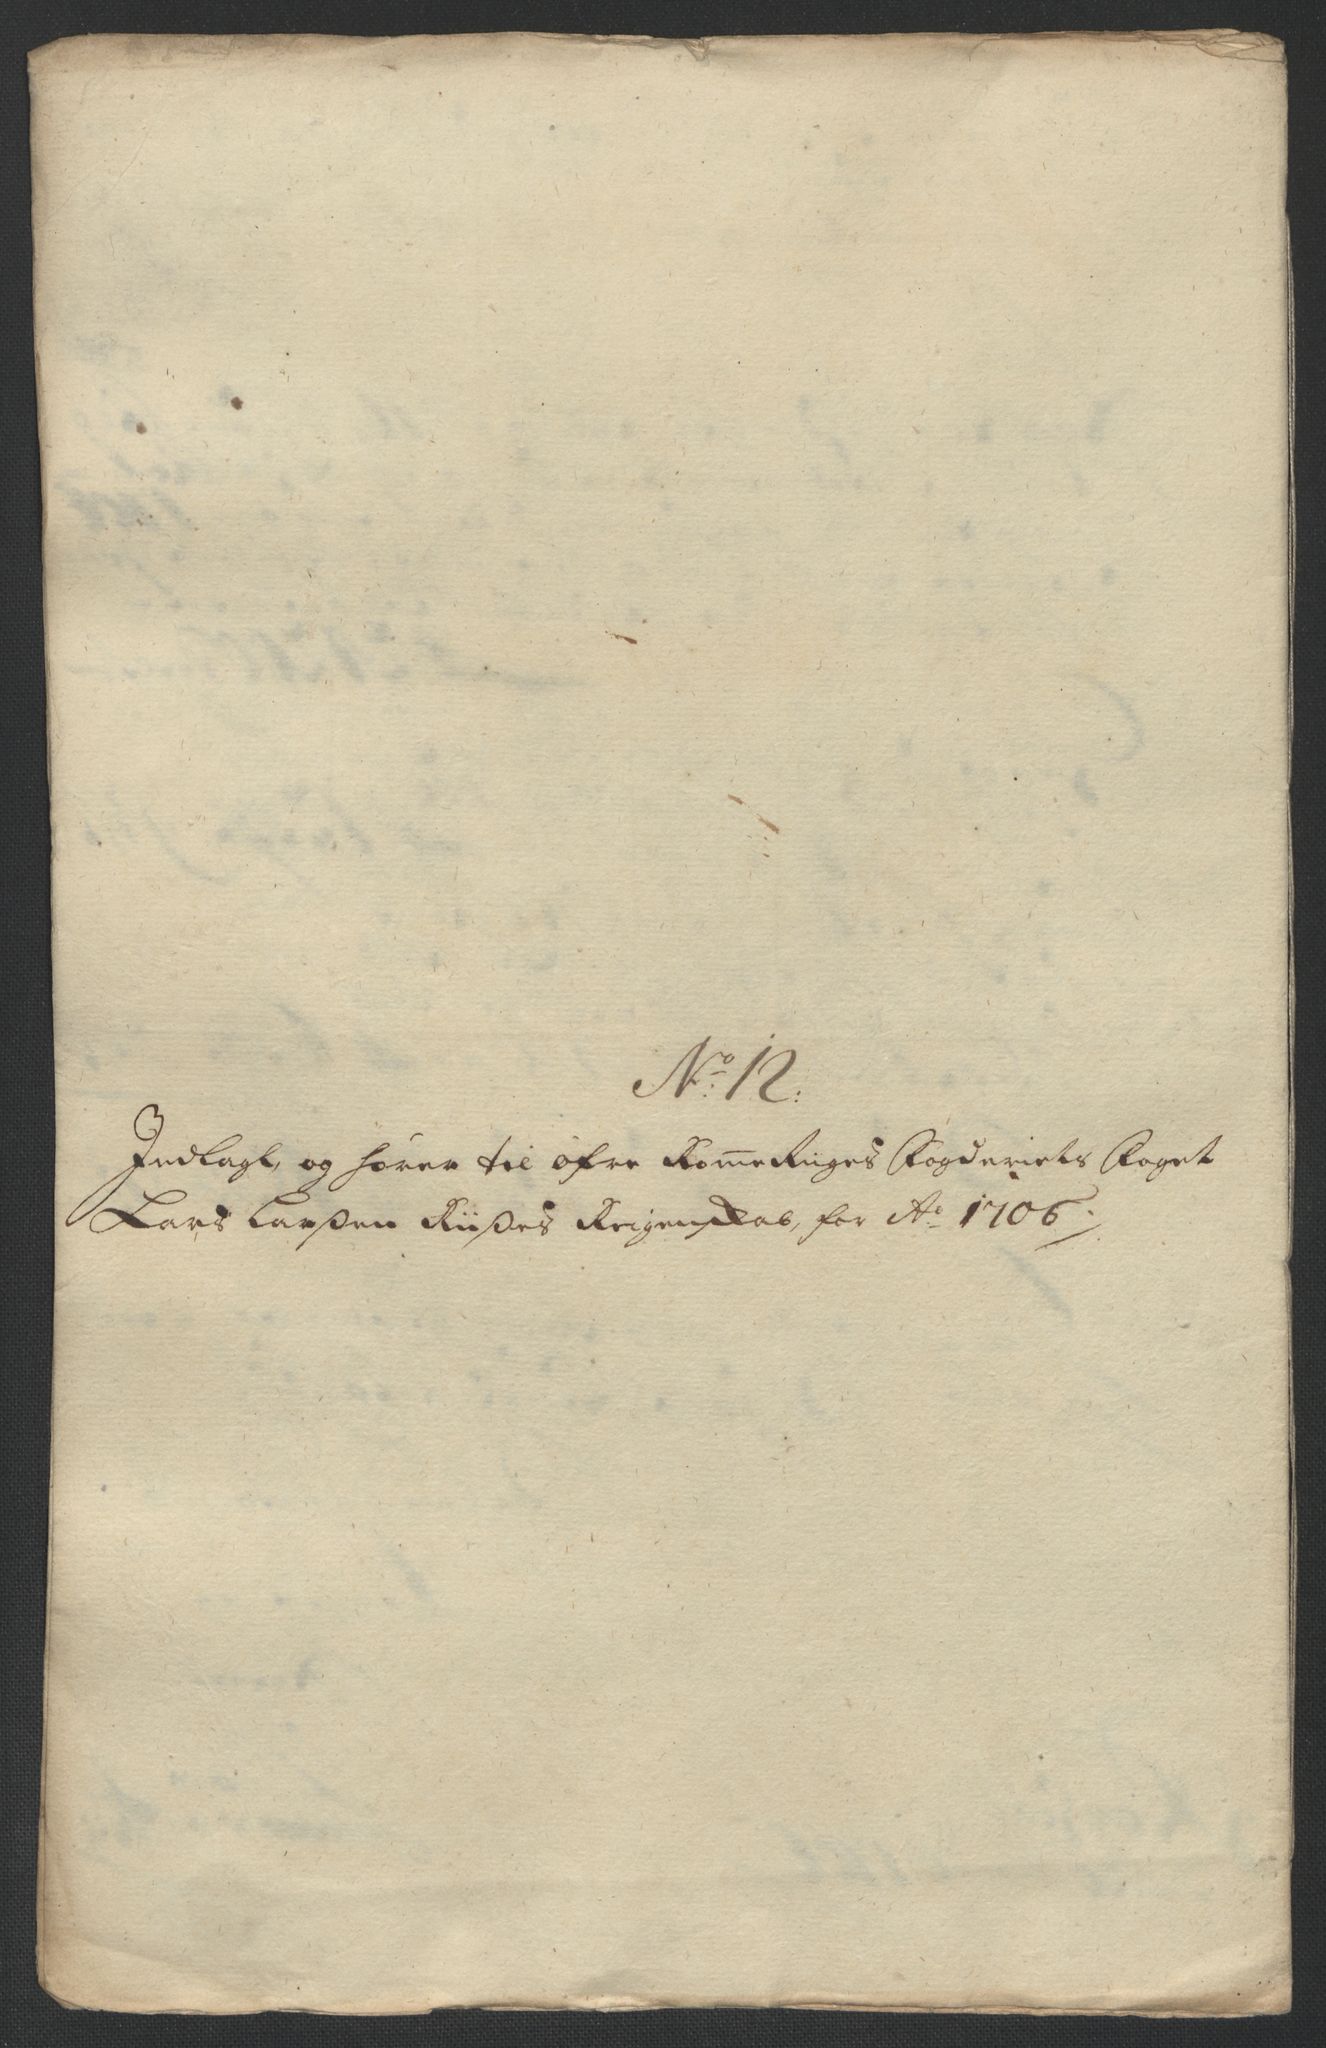 No: 12:
Indlagt, og hører til øfre RommeRiiges Fogderiets Foget
Lars Larßen Riißes Reigenskab, for Ao 1706